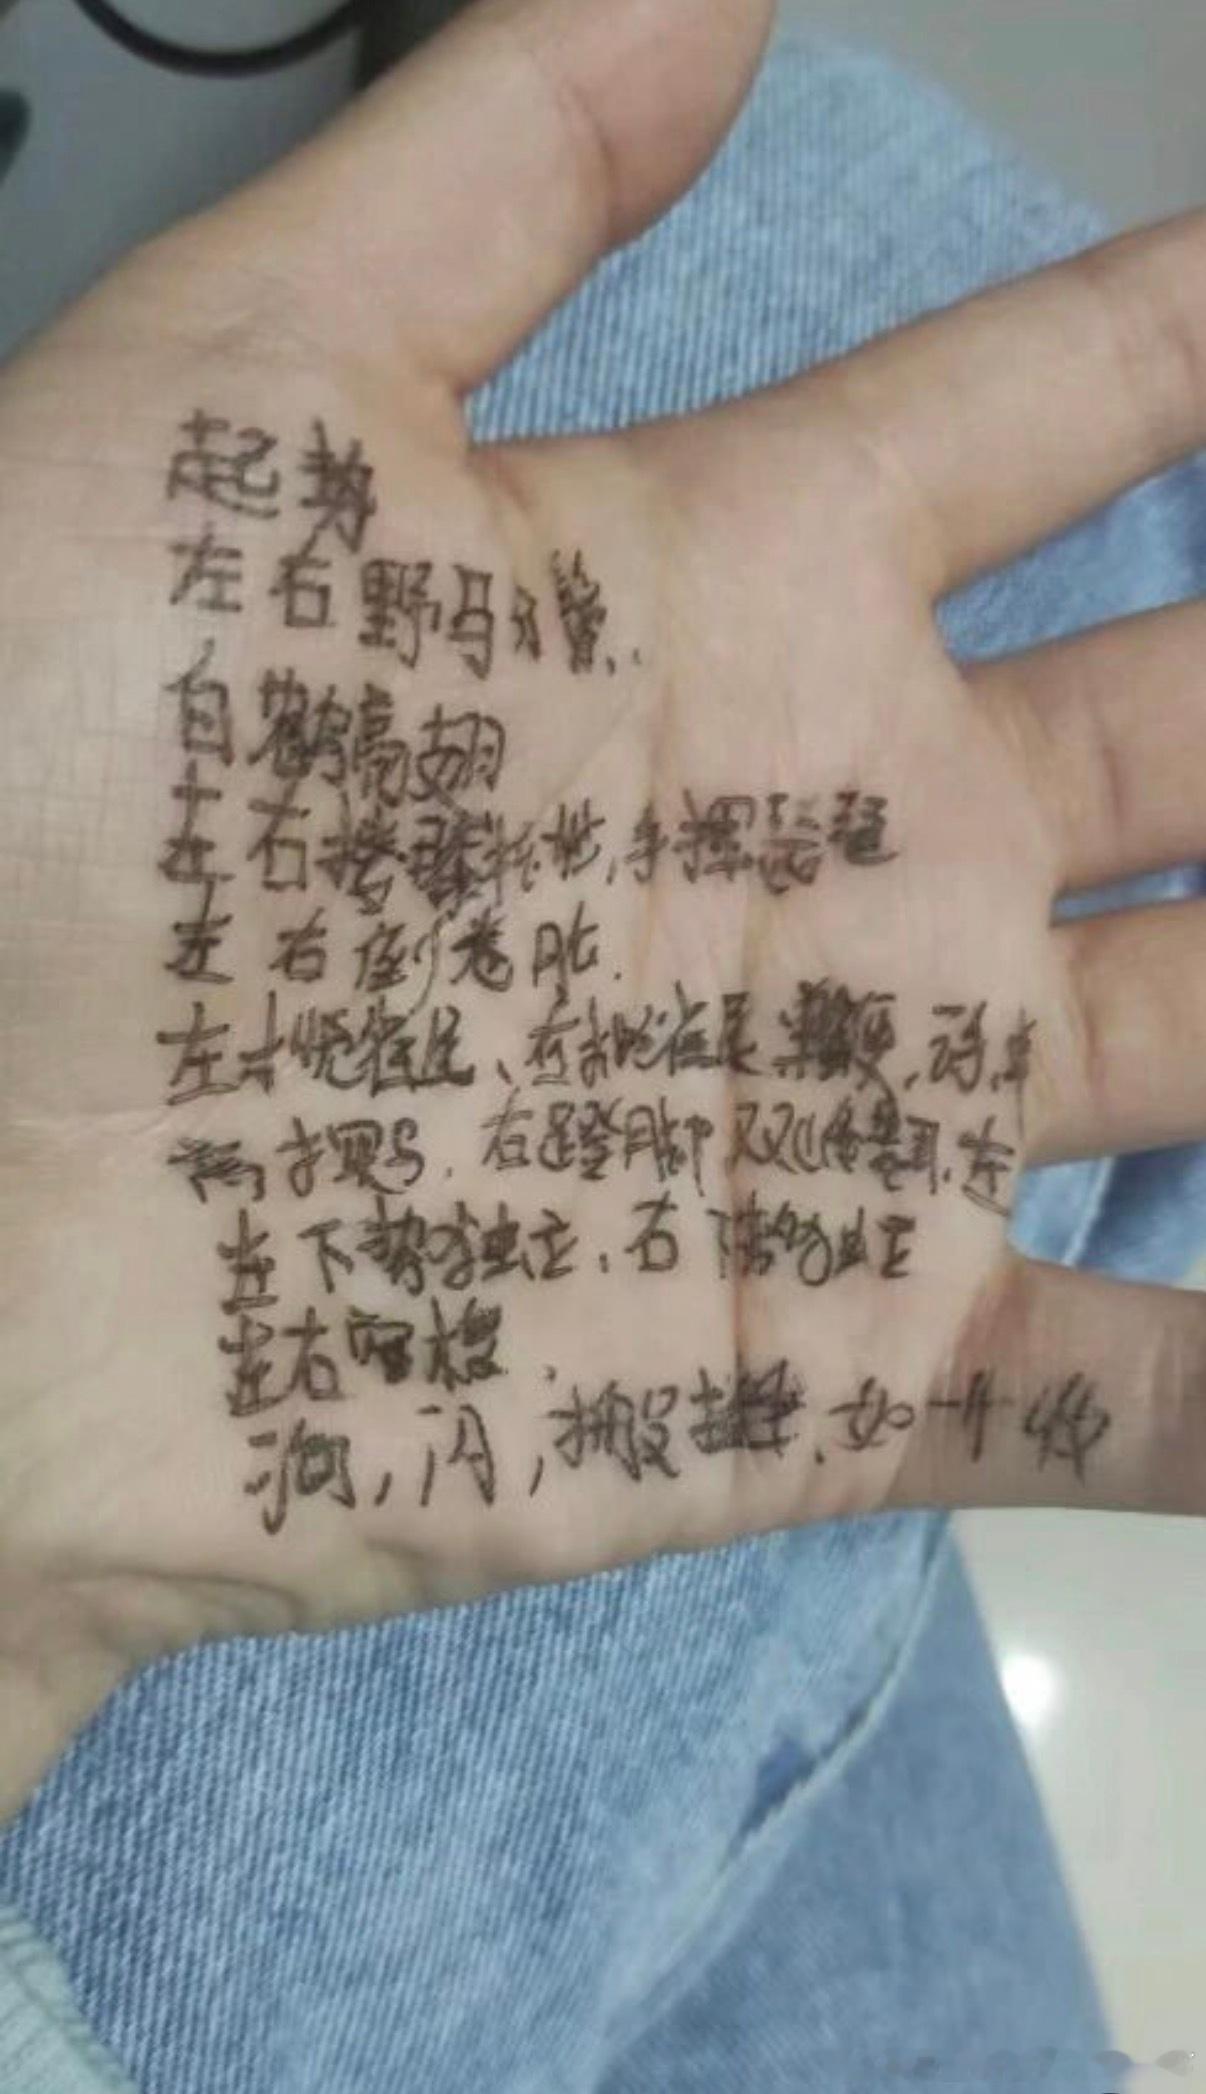 起势
左右野马分鬃.
白鹤亮翅
左右搂膝拗步,手挥琵琶
左右倒卷肱.
左揽雀尾、右揽雀尾 单鞭,云手
高探马.右蹬脚 双峰贯耳.左
左下势独立.右下势独立
左右穿梭.
海,闪,搬拦捶.如 十 收